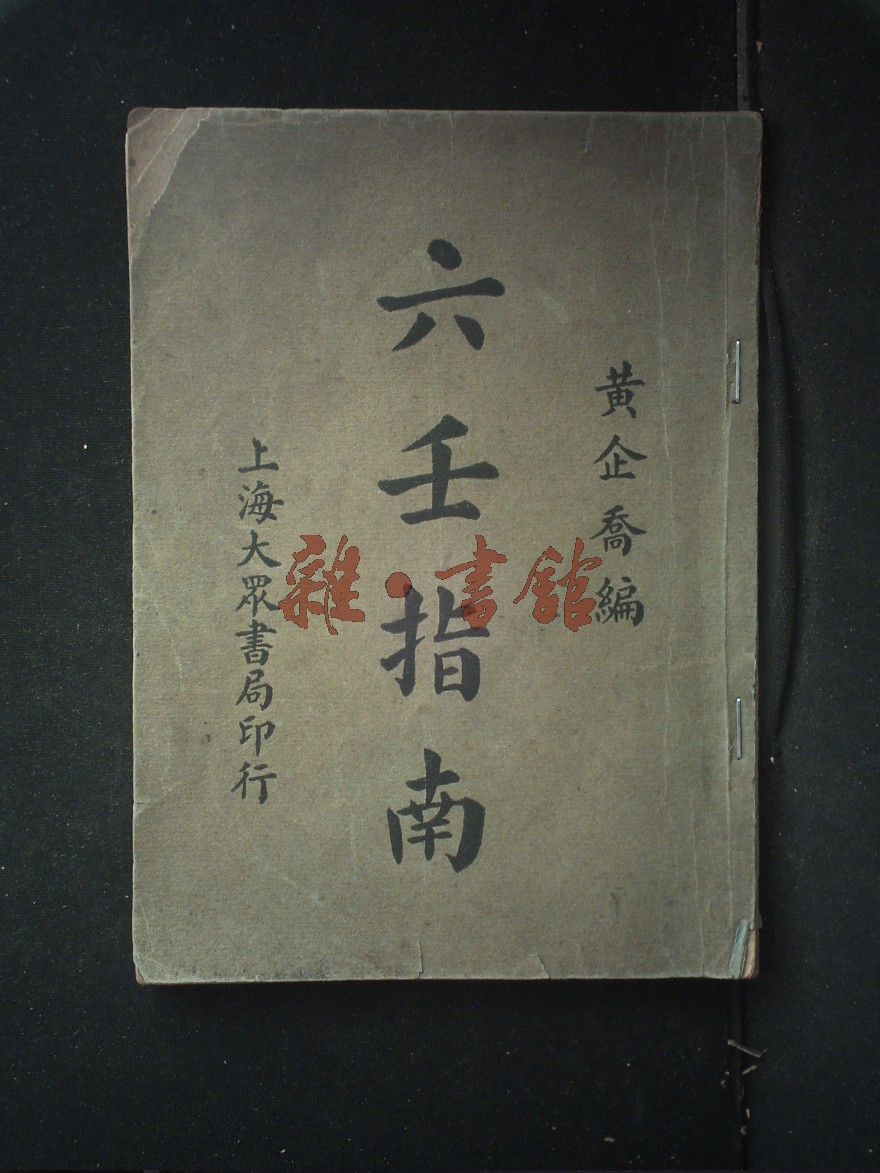 黃企喬編
六壬指南
上海大眾書局印行
雜·書舘